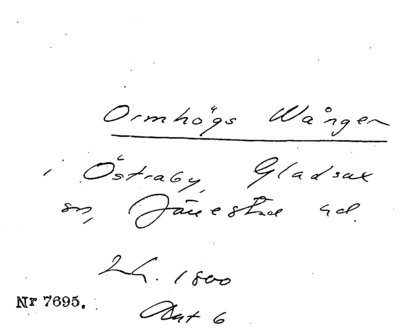 Ormhögs Wången
i Östraby, Gladsax
sn, Järrestad hd.
1800
Nr 7695.
6